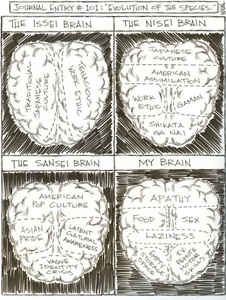 JOURNAL ENTRY # 101: "EVOLUTION OF THE SPECIES."
THE ISSEI BRAIN
TRADITIONAL
JAPANESE
CULTURE
WORK ETHIC
THE NISEI BRAIN
JAPANESE
CULTURE
AMERICAN
ASSIMILATION
WORK
ETHIC
GAMAN
SHIKATA
GA NAI
THE SANSEI BRAIN
AMERICAN
POP CULTURE
ASIAN
PRIDE
LATENT
CULTURAL
AWARENESS
VAGUE
IDENTITY
CRISIS
MY BRAIN
APATHY
FOOD
SEX
LAZINESS
T.V.
REMOTE